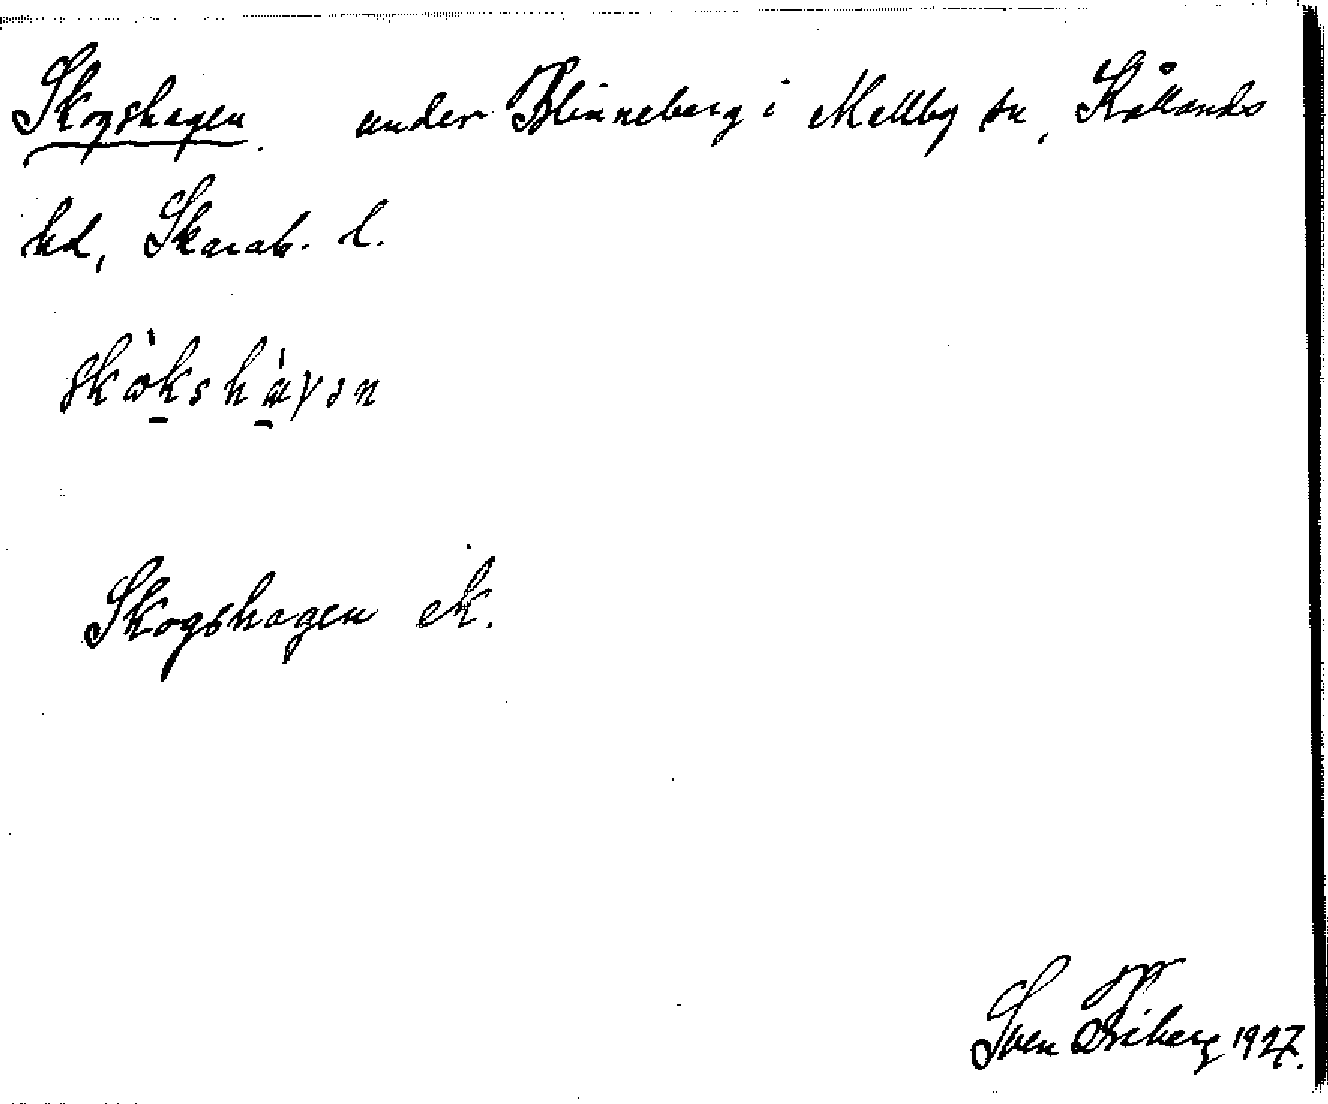 Skogshagen. under Blinneberg i Mellby sn, Kållands
hd, Skarab. l.
Skogshagen ek.
Sven Friberg 1927.